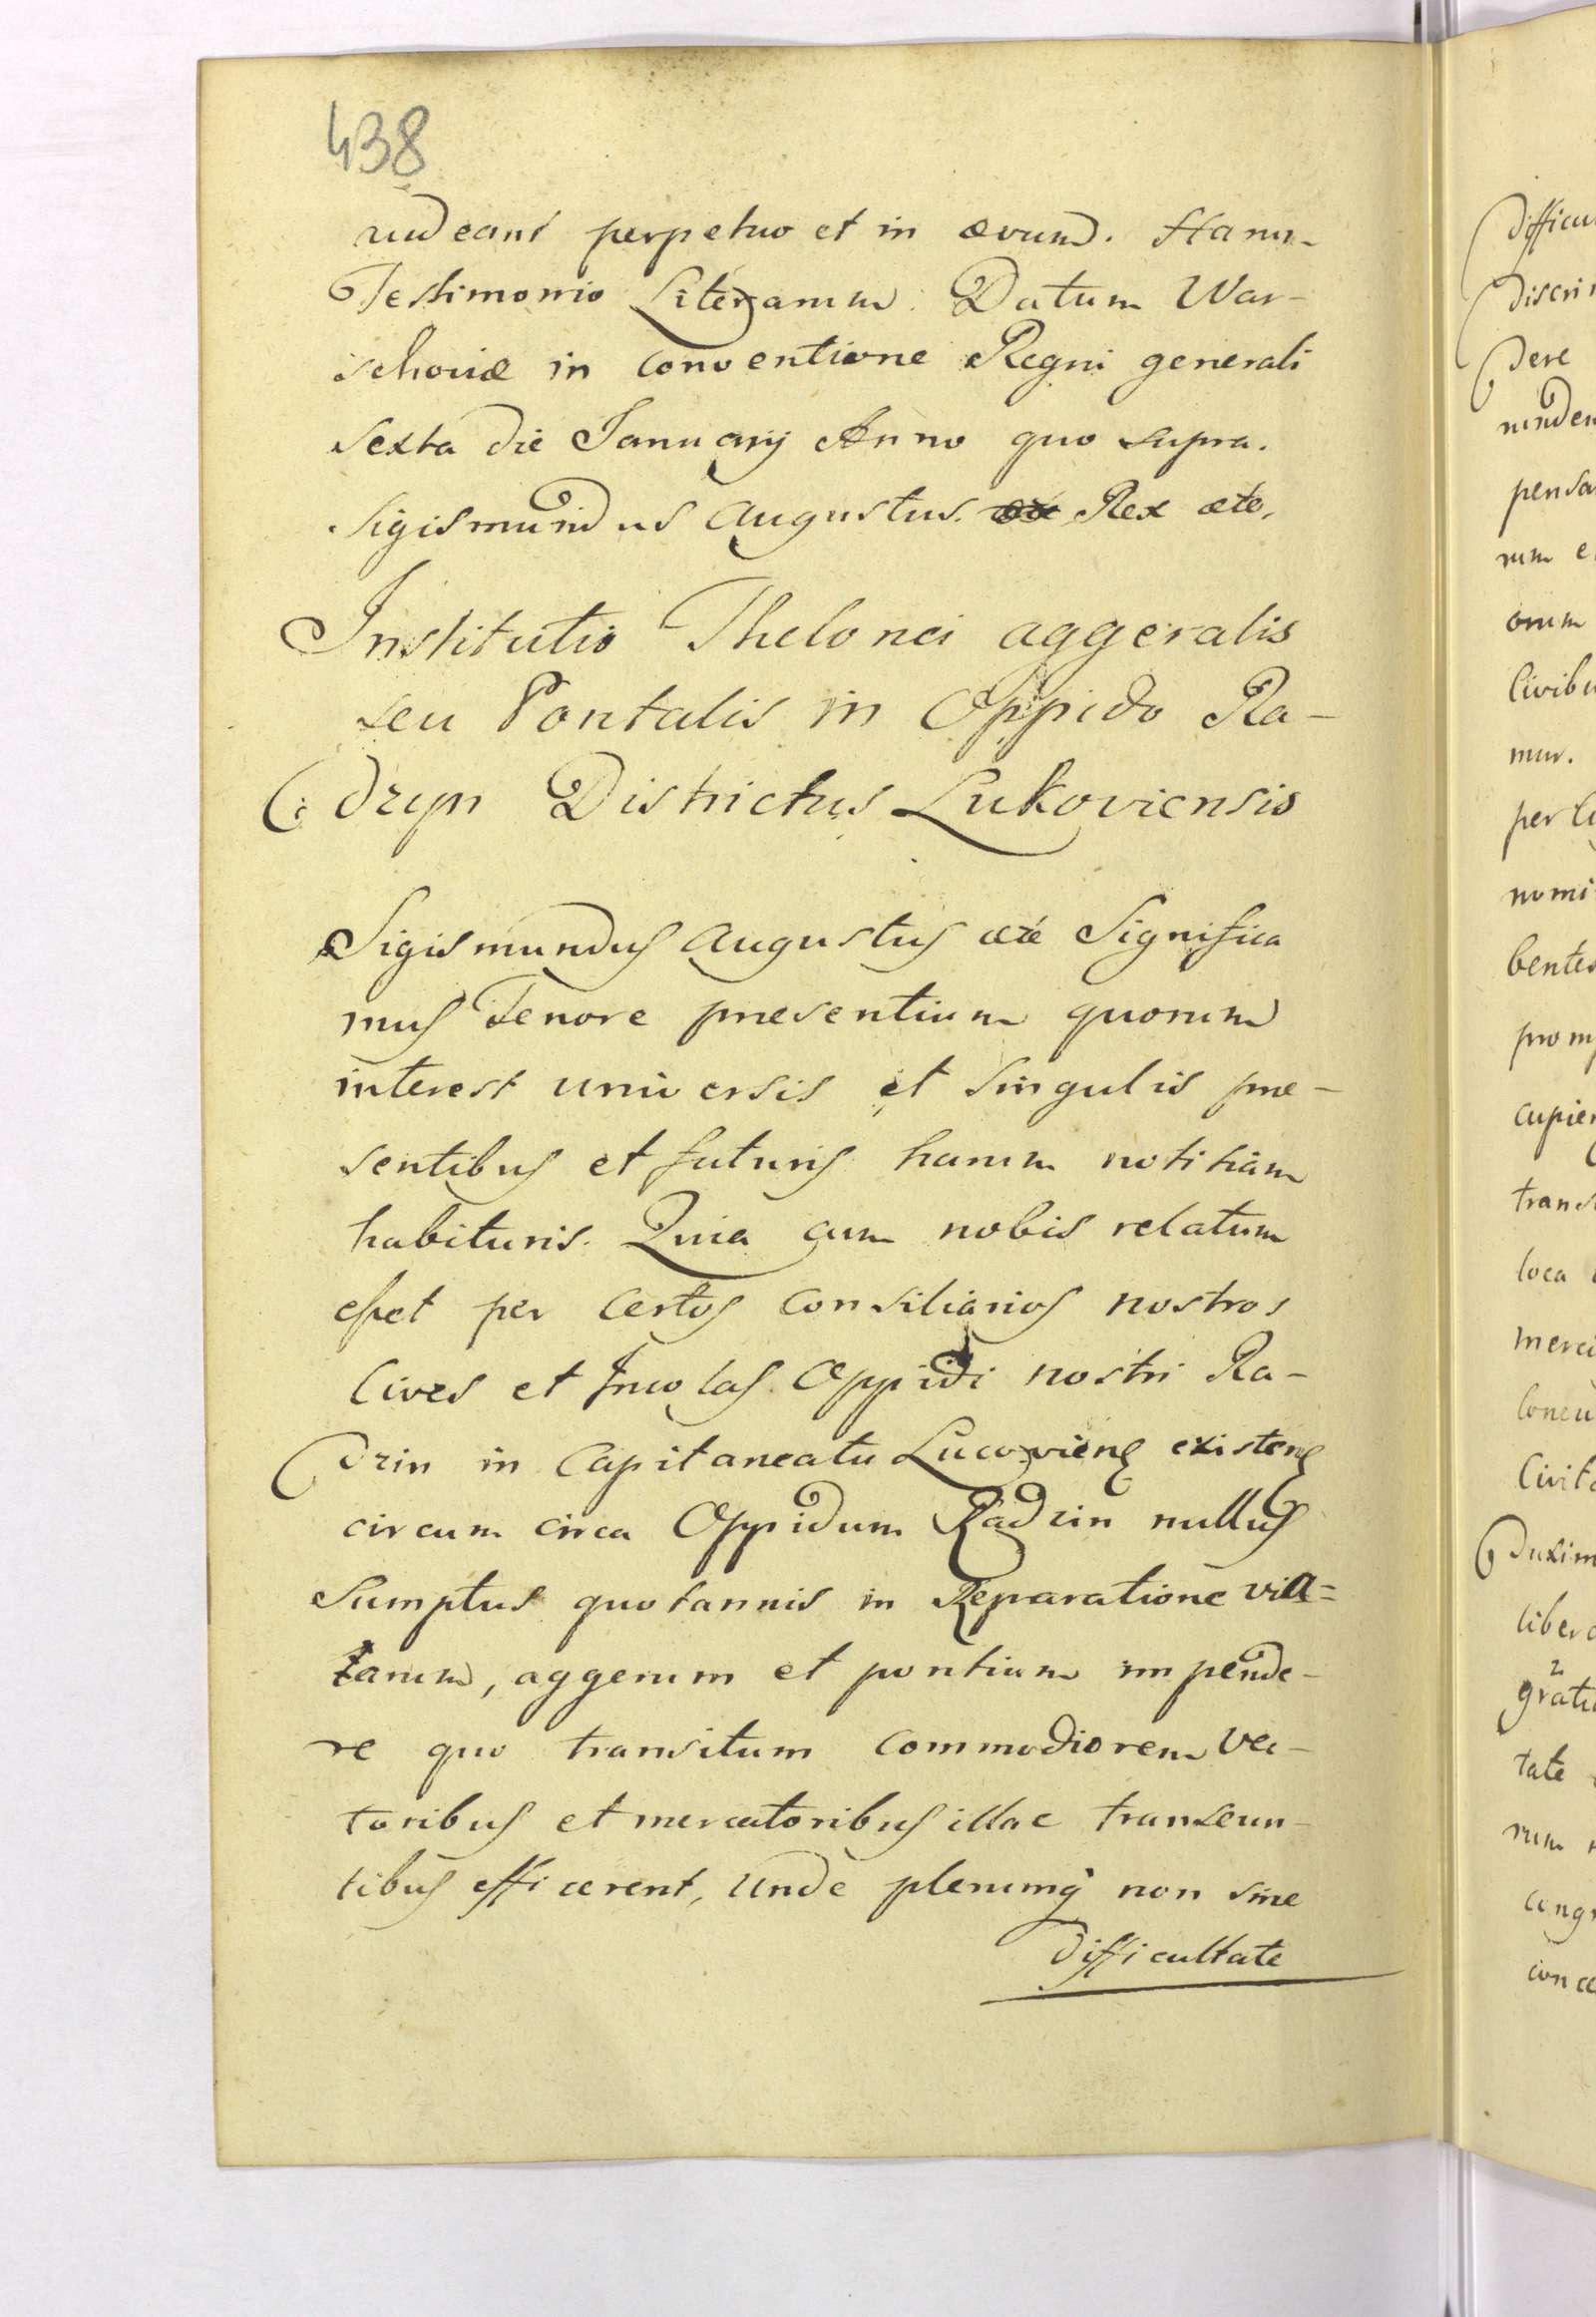 438
audeant perpetuo et in ævum. Harum
Testimonio Literarum. Datum War-
schoviæ in conventione Regni generali
sexta die Januarij Anno quo supra.
Sigismundus Augustus. Rex etc.
Institutio Thelonei aggeralis
seu Pontalis in Oppido Ra-
dzyn Districtus Lukoviensis
Sigismundus Augustus etc Significa
mus Tenore presentium quorum
interest universis et singulis pre-
sentibus et futuris harum notitiam
habituris. Quia cum nobis relatum
esset per certos Consiliarios nostros
Cives et Incolas Oppidi nostri Ra-
dzin in Capitaneatu Lucovien existen
circum circa Oppidum Radzin nullus
Sumptus quotannis in Reparatione via-
rum, aggerum et pontium impende-
re quo transitum commodiorem vec-
toribus et mercatoribus illac transeun-
tibus efficerent, Unde plerumq non sine
difficultate
Difficu
Discri
dere
pensa
rum e
orum
Civibu
mur.
nomi
bentes
cupien
trans
loca
merci
loneu
Civita
Duxim
libera
gratu
tate
rum
congr
conce